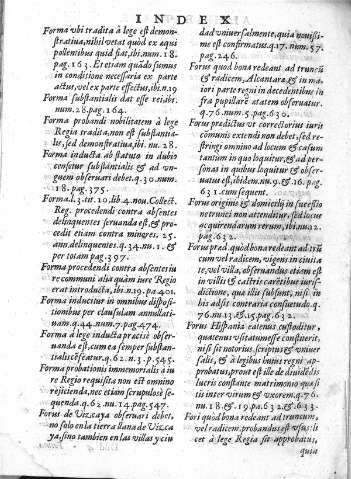 INDEX
Forma vbi tradita à lege est demon-
stratiua, nihil vetat quòd ex æqui
pollentibus quid fiat, ibi. num. 18.
pag. 163. Et etiam quãdo sumus
in conditione necessaria ex parte
actus, vel ex parte effectus, ibi. n. 19
Forma substantialis dat esse rei ibi.
num. 28. pag. 164.
Forma probandi nobilitatem à lege
Regia tradita, non est substantia-
lis, sed demonstratiua, ibi. nu. 28.
Forma inducta ab statuto in dubio
censetur substantialis & ad vn-
guem obseruari debet. q. 30. num.
18. pag. 375.
Forma. l. 3. tit. 10. lib. 4. nou. Collect.
Reg. procedendi contra absentes
delinquentes seruanda est, & pro-
cedit etiam contra minores, 25.
ann. delinquentes. q. 34. nu. 1. &
per totam pag. 397.
Forma procedendi contra absentes iu
re communi alia quàm iure Regio
erat introducta, ibi. n. 19. pa. 402.
Forma inducitur in omnibus disposi-
tionibus per clausulam annullati-
uam. q. 44. num. 7. pag. 474.
Forma ab statuto inducta præcisè obser-
uanda est, cum ea semper substan-
tialis cẽseatur. q. 62. n. 3. p. 545.
Forma probationis immemorialis à iu
re Regio requisita non est omnino
reijcienda, nec etiam scrupulosè se-
quenda. q. 62. nu. 14. pag. 547.
Forus de Vizcaya obseruari debet,
no solo en la tierra llana de Vizca
ya, sino tambien en las villas y ciu
dad vniuersalmente, quia nouissi-
me est confirmatus. q. 17. num. 57.
pag. 246.
Forus quòd bona redeant ad truncũ
& radicem, Alcantara, & in ma-
iori parte regni in decedentibus in
fra pupillarẽ ætatem obseruatur.
q. 76. num. 5. pag. 630.
Forus prædictus vt correctorius iuris
communis extendi non debet, sed re-
stringi omnino ad locum & casum
tantum in quo loquitur, & ad per-
sonas in quibus loquitur & obser-
uatus est, ibidem. nu. 9. & 16. pag.
631. cum sequent.
Forus originis & domicilij in succesio
ne trunci non attenditur, sed locus
acquirendarum rerum, ibi. nu. 12.
pag. 632.
Forus præd. quòd bona redeant ad trũ
cum vel radicem, vigens in ciuita
te, vel villa, obseruandus etiam est
in villis & castris carẽtibus iuris-
dictione, quæ illis subsunt, nisi in
his adsit contraria consuetudo. q.
76. nu. 13. & 15. pag. 632.
Forus Hispania eatenus custoditur,
quatenus vsitatum esse constiterit,
nisi sit notorius, scriptus & vniuer
salis, & à legibus huius regni ap-
probatus, prout est ille de diuidẽdis
lucris constante matrimonio quæsi
tis inter virum & vxorem. q. 76.
nu. 18. & 19. pa. 632. & 633.
Fori quòd bona redeant ad truncum,
vel radicem, probandus est vsus: li
cet à lege Regia sit approbatus,
quia